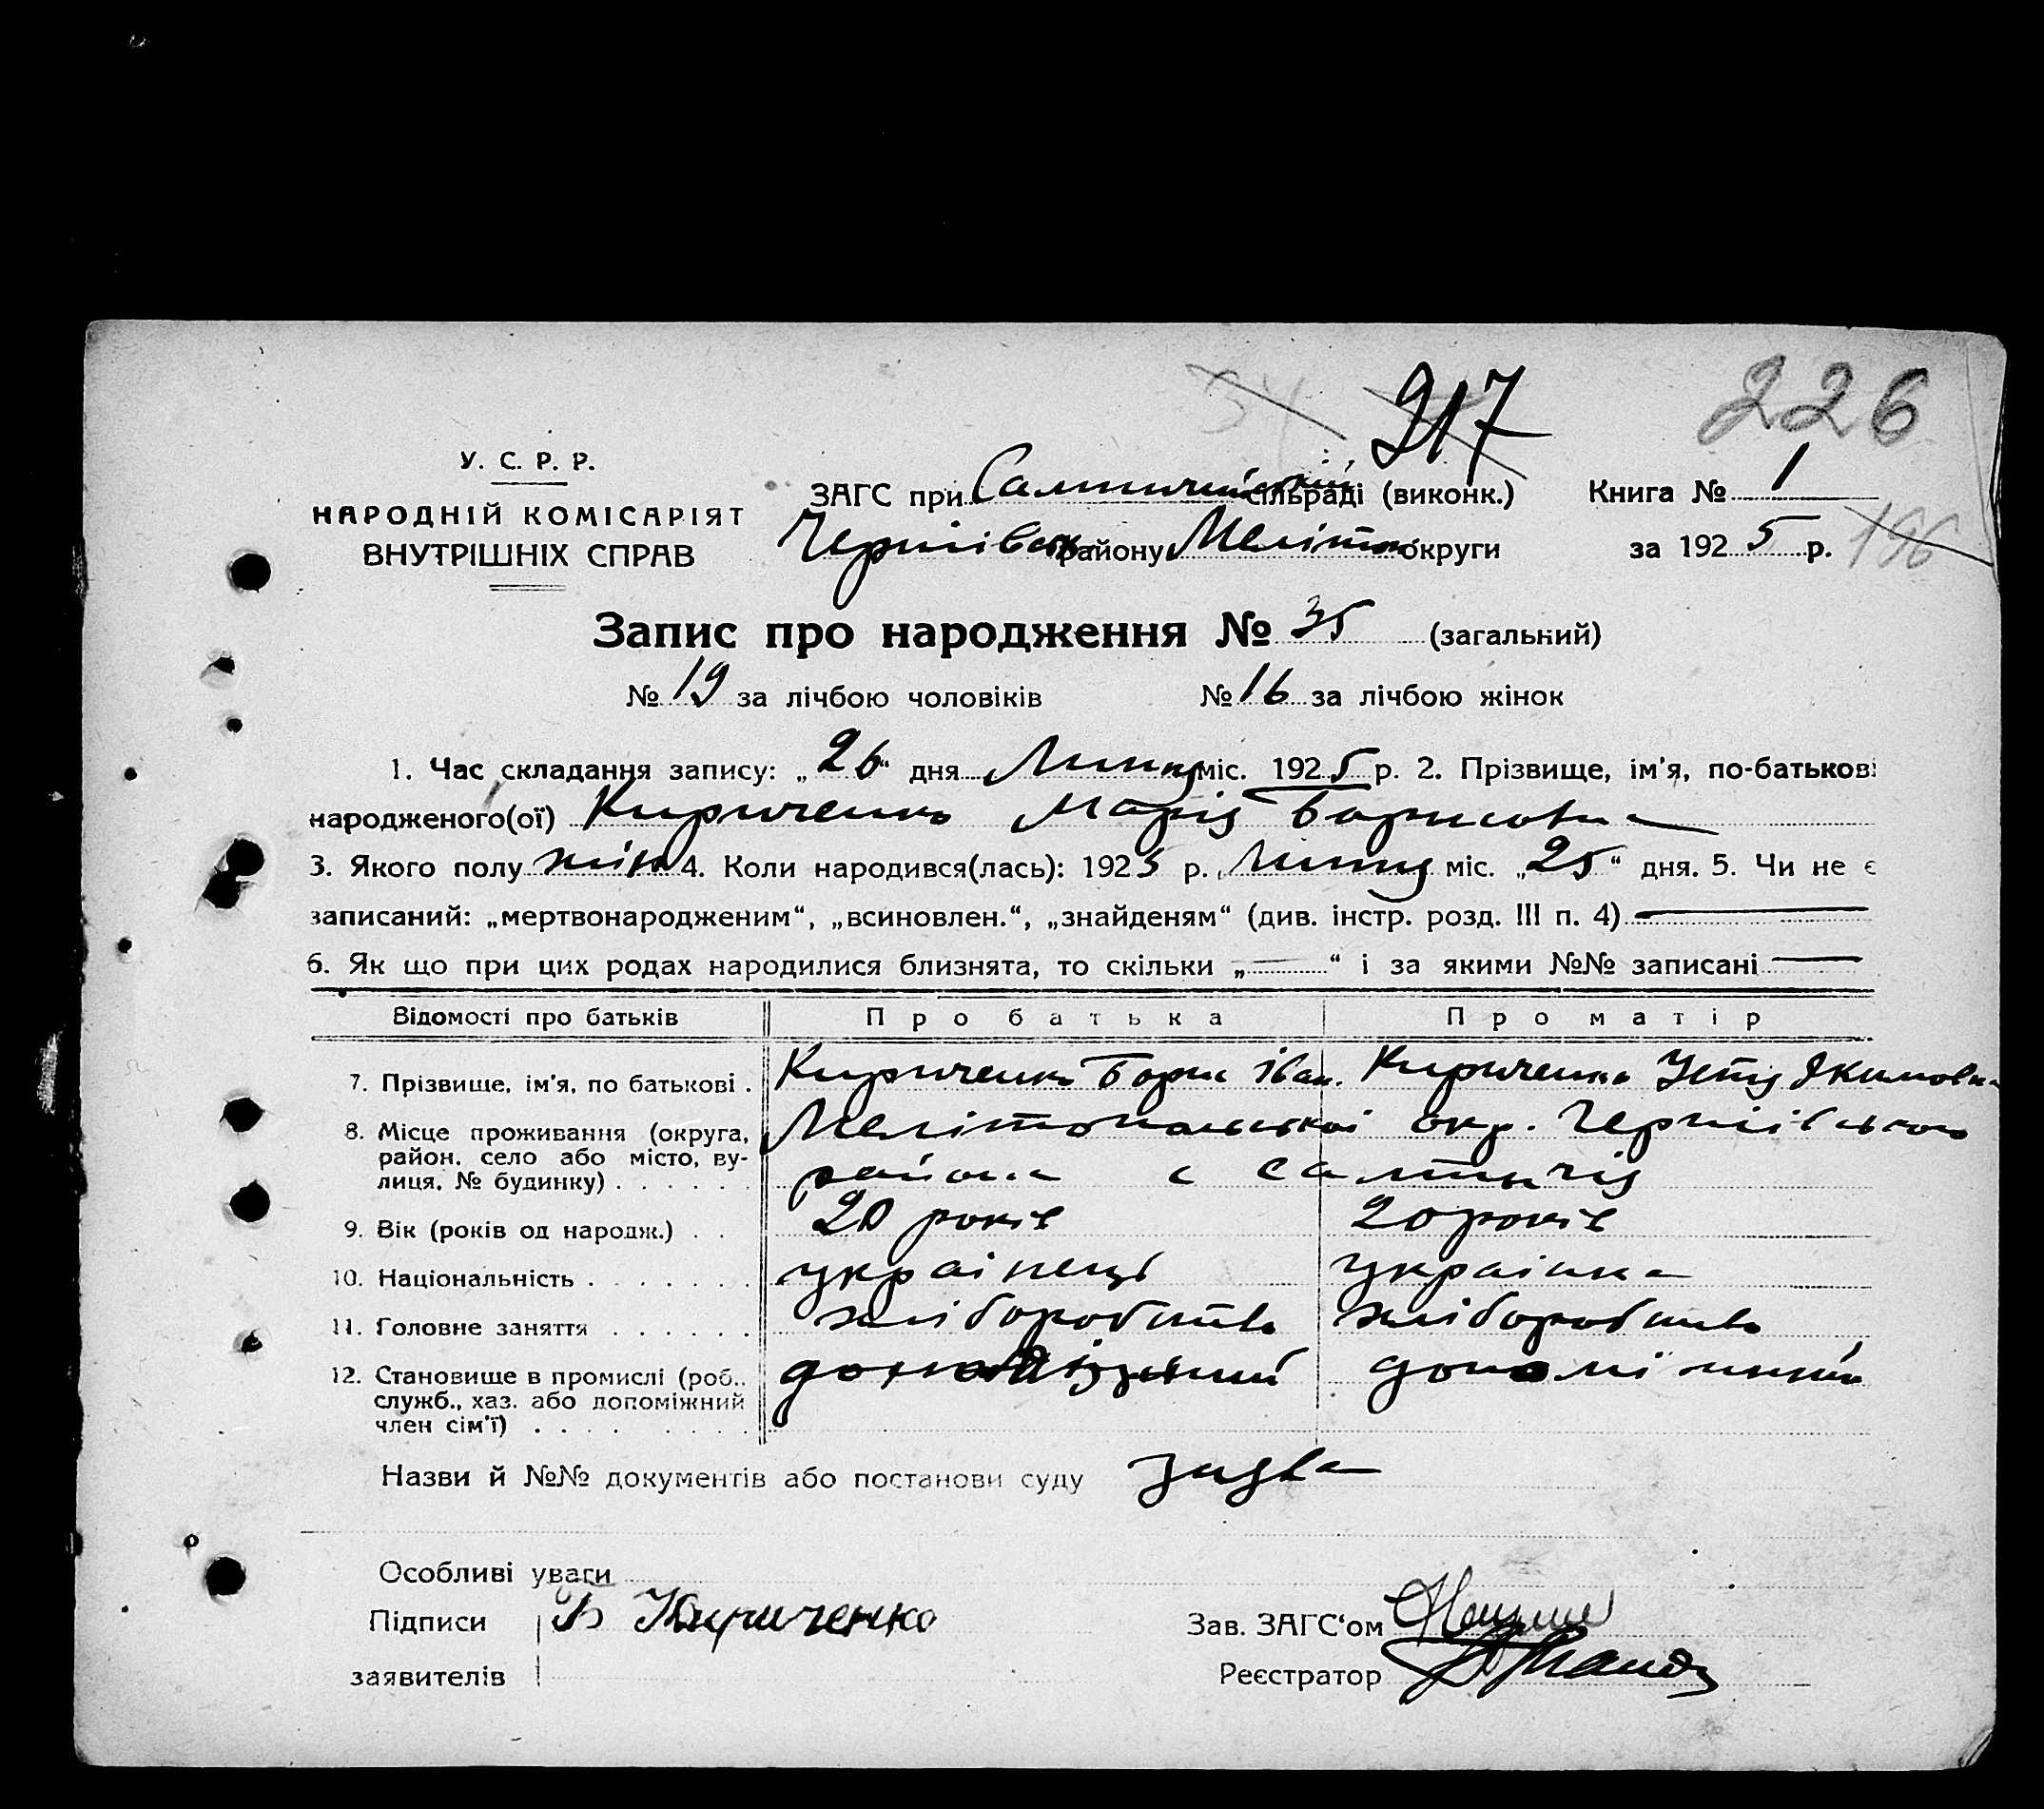 217 226
У. С. Р. Р.
НАРОДНІЙ КОМІСАРІЯТ
ВНУТРІШНІХ СПРАВ
ЗАГС при Салтичійській сільраді (виконк.) Книга № 1
Чернігівськ району Меліто округи за 1925 р. 196
Запис про народження № 35 (загальний)
№ 19 за лічбою чоловіків № 16 за лічбою жінок
1. Час складання запису: „26“ дня Липня міс. 1925 р. 2. Прізвище, ім'я, по-батькові
народженого(ої) Кириченко Марія Борисовна
3. Якого полу жін 4. Коли народився(лась): 1925 р. Липня міс. „25“ дня. 5. Чи не є
записаний: „мертвонародженим“, „всиновлен.“, „знайденям“ (див. інстр. розд. III п. 4)
6. Як що при цих родах народилися близнята, то скільки „—“ і за якими №№ записані —
Відомості про батьків Про батька Про матір
7. Прізвище, ім'я, по батькові . Кириченко Борис Іван. Кириченко Якимовна
8. Місце проживання (округа, район, село або місто, вулиця, № будинку) . . . . . . Мелітопольської окр. Чернігівського
района с Салтичія
9. Вік (років од народж.) . . 20 років 20 років
10. Національність . . . . . . . українець українка
11. Головне заняття . . . . . . хліборобство хліборобство
12. Становище в промислі (роб., служб., хаз. або допоміжний член сім'ї) . . . . . . . . допоміжний
Назви й №№ документів або постанови суду
Особливі уваги
Підписи Б Кириченко Зав. ЗАГС‘ом
заявителів Реєстратор